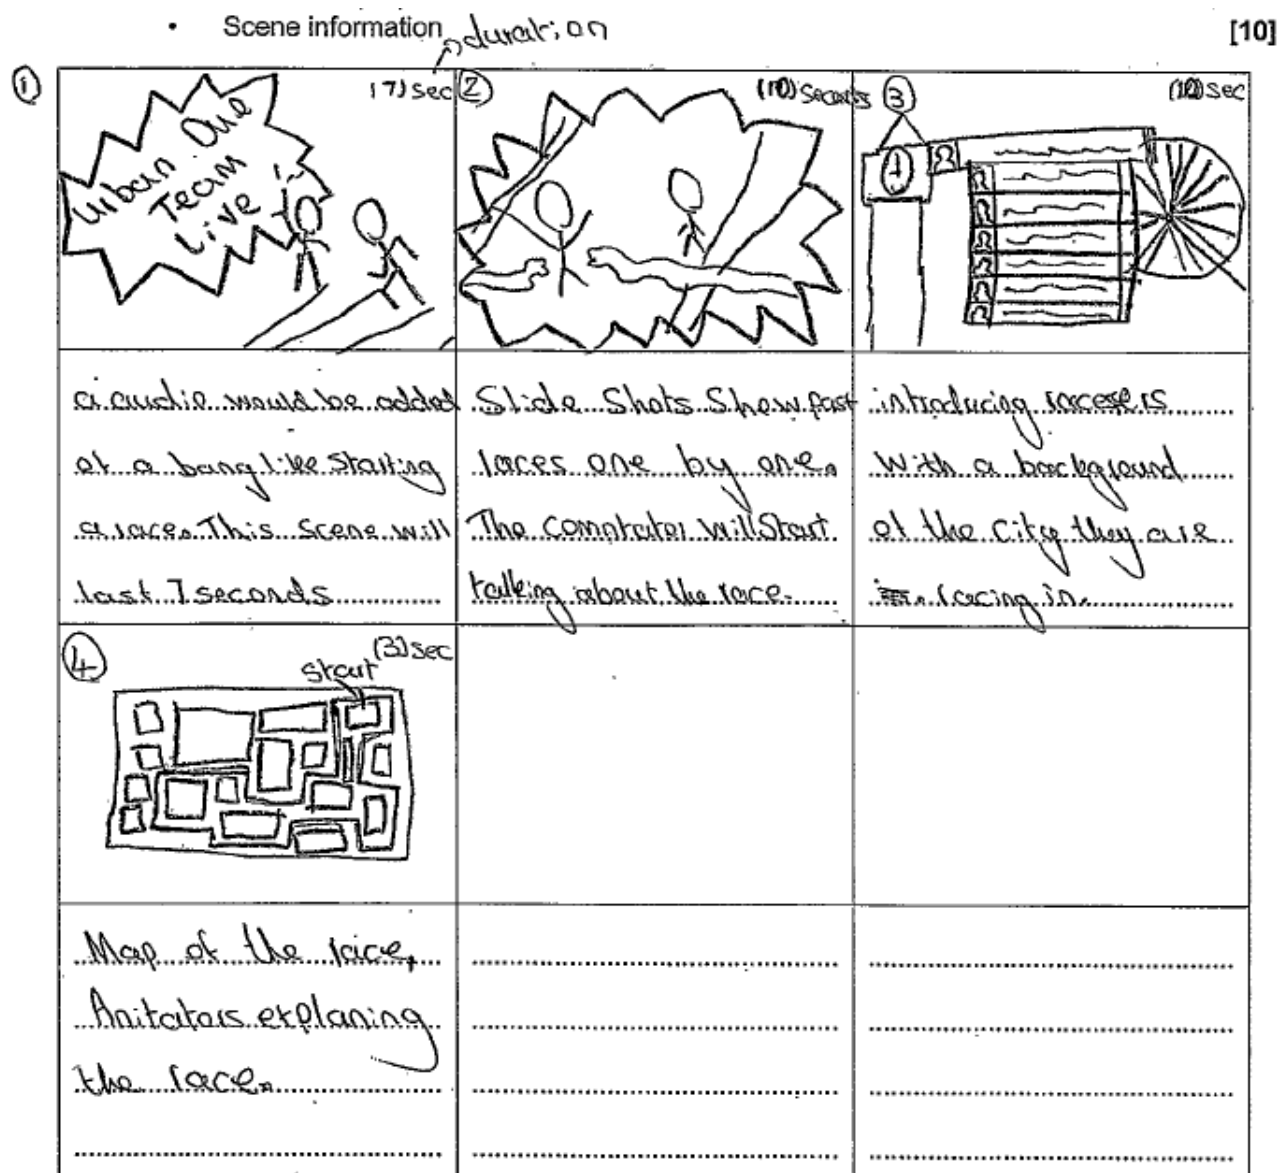 • Scene information
duration
[10]
1
(7) sec
Urban One
Team
Live
2
(10) seconds
3
(10) sec
1
a audio would be added
of a bang like starting
a race. This scene will
last 7 seconds
Slide Shots Show past
races one by one.
The comptater will Start
talking about the race.
introducing racesers
With a background
of the City they are
racing in.
4
(3) sec
Start
Map of the race,
Anitators explaning
the race.